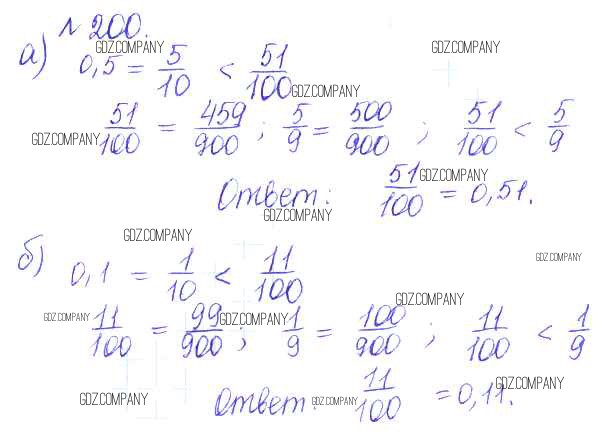 № 200.
а) 0,5 = 5/10 < 51/100
51/100 = 459/900 ; 5/9 = 500/900 ; 51/100 < 5/9
Ответ: 51/100 = 0,51.
б) 0,1 = 1/10 < 11/100
11/100 = 99/900 ; 1/9 = 100/900 ; 11/100 < 1/9
Ответ: 11/100 = 0,11.
GDZ.COMPANY
GDZ.COMPANY
GDZ.COMPANY
GDZ.COMPANY
GDZ.COMPANY
GDZ.COMPANY
GDZ.COMPANY
GDZ.COMPANY
GDZ.COMPANY
GDZ.COMPANY
GDZ.COMPANY
GDZ.COMPANY
GDZ.COMPANY
GDZ.COMPANY